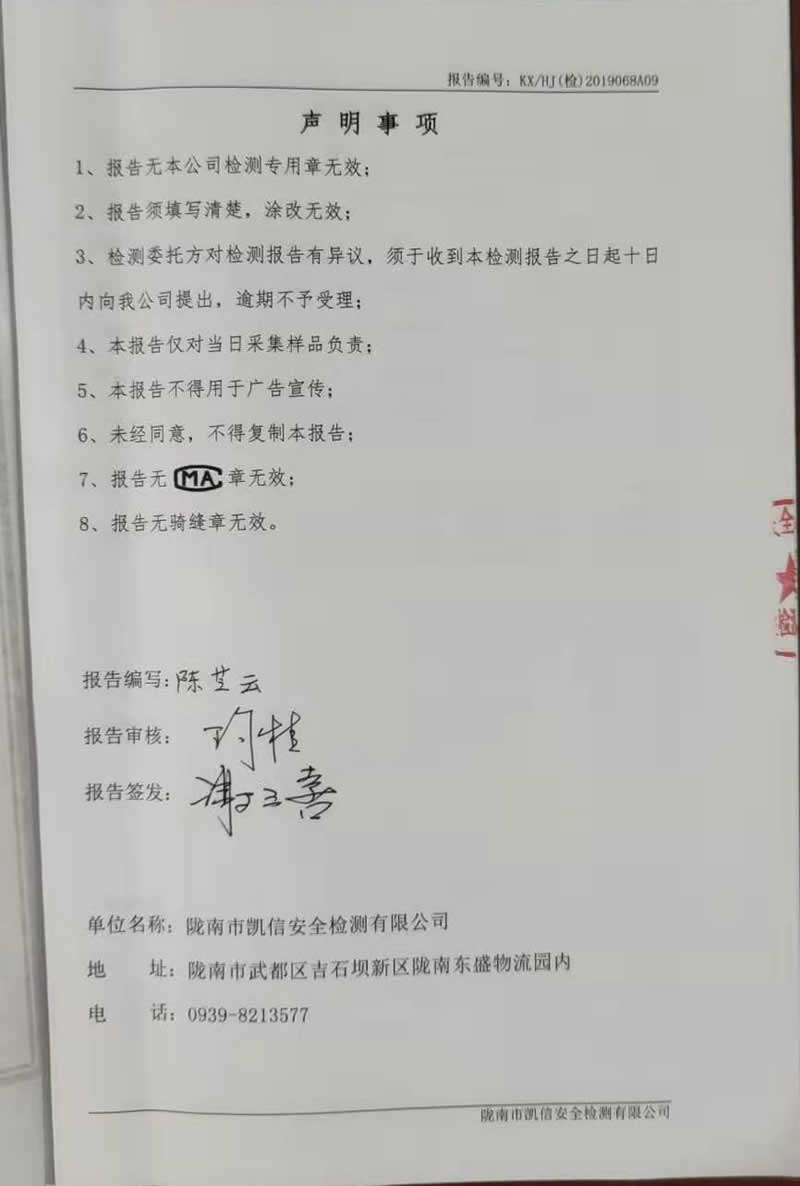 报告编号：KX/HJ(检)2019068A09
声明事项
1、报告无本公司检测专用章无效；
2、报告须填写清楚，涂改无效；
3、检测委托方对检测报告有异议，须于收到本检测报告之日起十日
内向我公司提出，逾期不予受理；
4、本报告仅对当日采集样品负责；
5、本报告不得用于广告宣传；
6、未经同意，不得复制本报告；
7、报告无 MA 章无效；
8、报告无骑缝章无效。
全
检
报告编写：陈芝云
报告审核：
报告签发：
单位名称：陇南市凯信安全检测有限公司
地 址：陇南市武都区吉石坝新区陇南东盛物流园内
电 话：0939-8213577
陇南市凯信安全检测有限公司